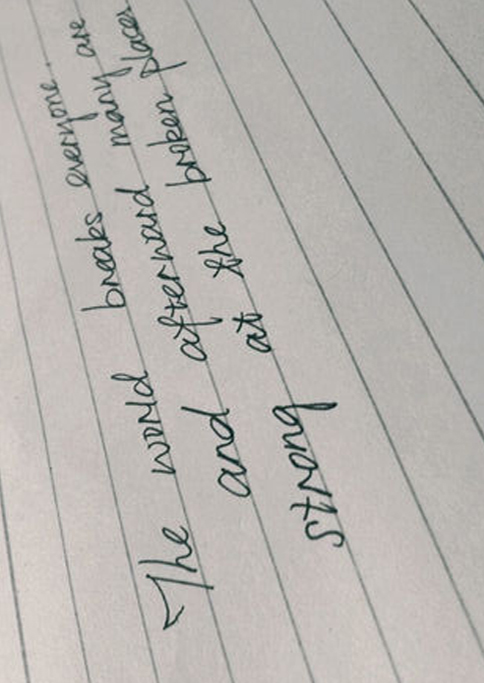 The world breaks everyone.
and afterward many are
strong at the broken places.